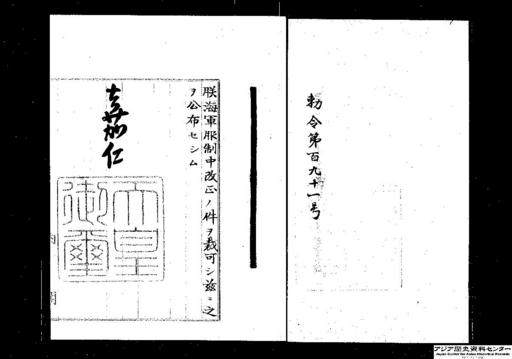 勅令第百九十一号
朕海軍服制中改正ノ件ヲ裁可シ茲ニ之
ヲ公布セシム
嘉仁
天皇
御璽
内
閣
アジア歴史資料センター
Japan Center for Asian Historical Records